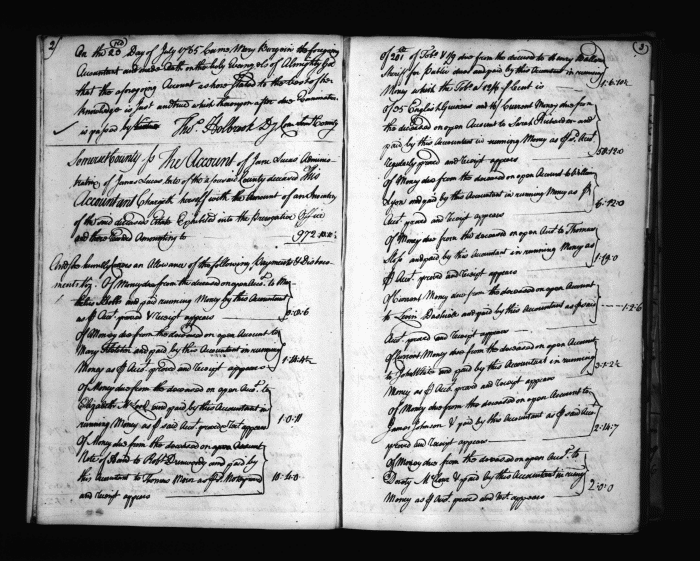 2
On the 20 Day of July 1785 Came Mary Burgoin the foregoing
Accountant and made Oath on the holy Evangels of Almighty God
that the aforegoing Account as here Stated to the best of her
knowledge is just and true which thereupon after due Examination
is passed by Tho. Holbrook Dy Com Somt County
Somerset County ss The Account of Jane Lucas Adminis-
tratrix of James Lucas late of the aforesaid County deceased This
Accountant Chargeth herself with the Amount of an Inventory
of the said deceased Estate Exhibited into the Prerogative Office
and there Recorded Amounting to 972
And humbly craves an Allowance of the following Payments & Disburse-
ments Viz. Of Money due from the deceased on open Acct. to
and paid running Money by this Accountant
as p Acct. proved & Receipt appears 2.0.6
Of Money due from the deceased on open Account to
Mary and paid by this Accountant in running
Money as p Acct. proved and Receipt appears 1.14.4½
Of Money due from the deceased on open Acct. to
Elizabeth and paid by this Accountant in
running Money as p said Acct. proved & Rect. appears 1.0.11
Of Money due from the deceased on open Account
Note of Hand to Robt and paid by
this Accountant to Thomas as p Note proved
and Receipt appears 10.4.0
3
of 201 of Tobo. & 19 due from the deceased to Henry
Sheriff for Public dues and paid by this Accountant in running
Money which the Tobo. a 12/6 p Cent is 1.6.10½
of 35 English Guineas and 4/ Current Money due from
the deceased on open Account to Sarah Richardson and
paid by this Accountant in running Money as p Acct.
regularly proved and receipt appears 58.12.0
Of Money due from the deceased on open Account to William
Lyon and paid by this Accountant in running Money as p
Acct. proved and receipt appears 6.12.0
Of Money due from the deceased on open Acct to Thomas
and paid by this Accountant in running Money as
p Acct. proved and receipt appears 1.19.0
Of Current Money due from the deceased on open Account
to Levin and paid by this Accountant as p said 1.2.6
Acct. proved and receipt appears
of Current Money due from the deceased on open Account
to John White and paid by this Accountant in running
Money as p Acct. proved and receipt appears 3.1.2½
Of Money due from the deceased on open Account to
James Johnson & paid by this Accountant as p said Acct
proved and Receipt appears 2.14.7
Of Money due from the deceased on open Acct. to
& paid by this Accountant in runing
Money as p Acct. proved and Rect. appears 2.0.0